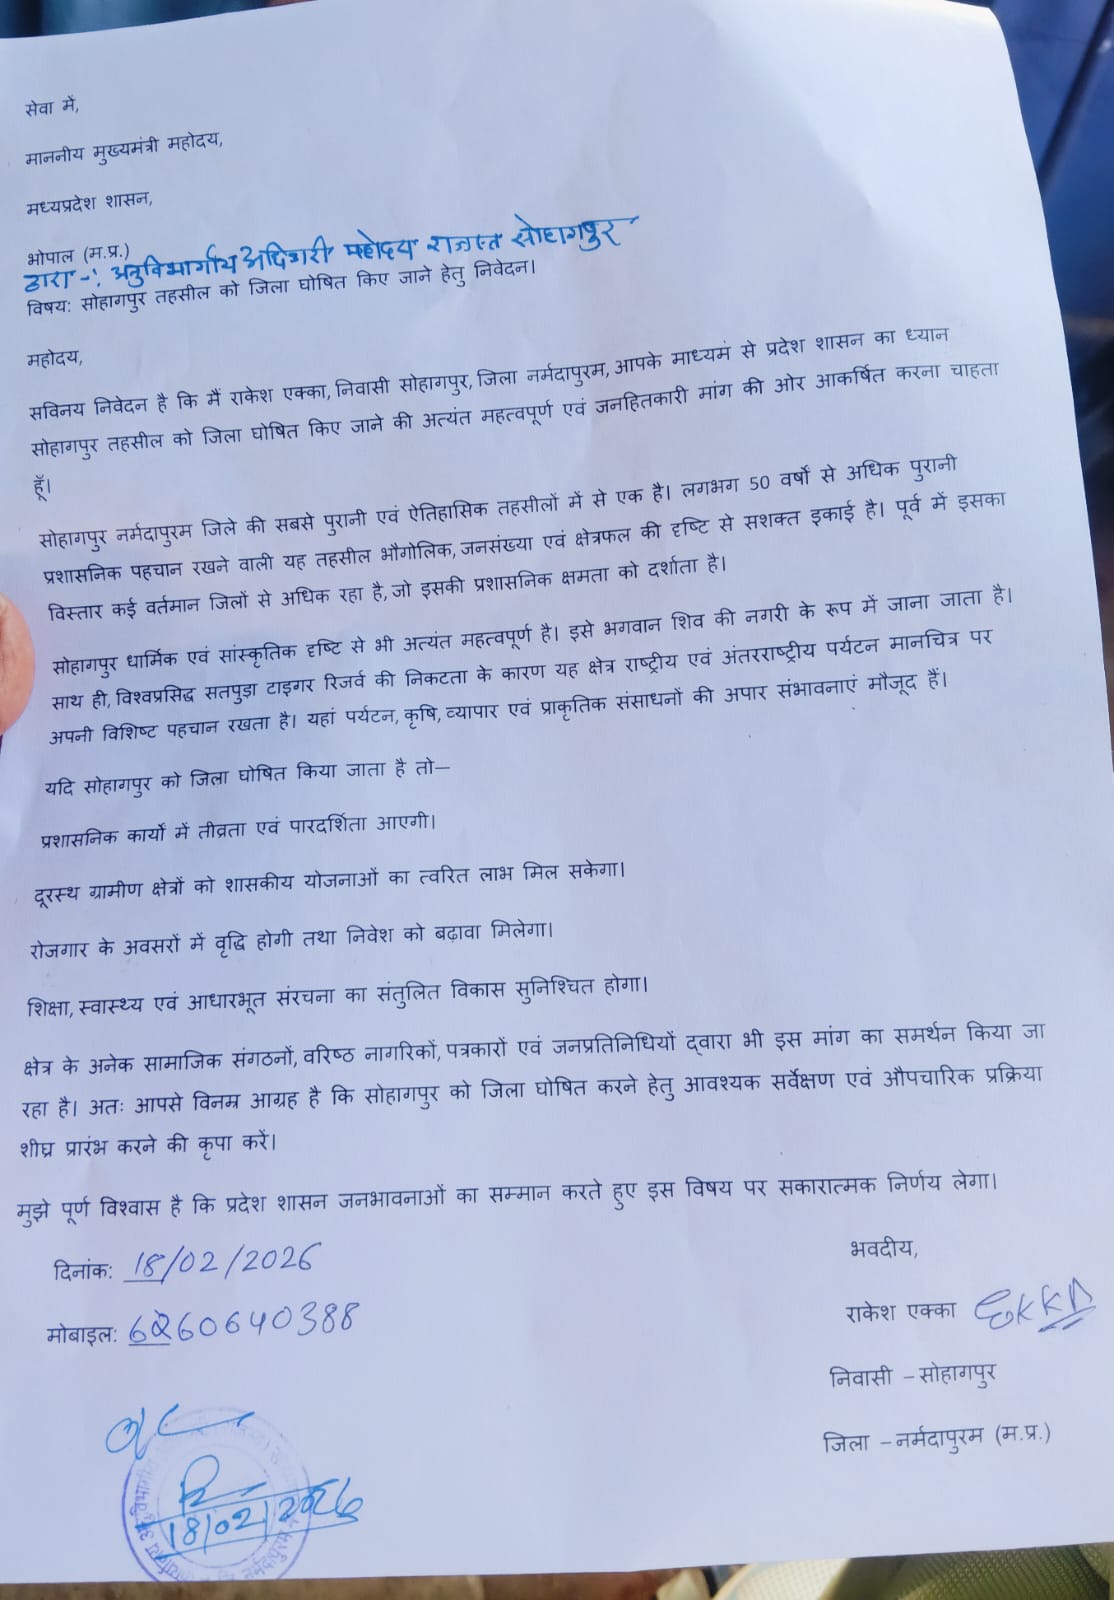 सेवा में,
माननीय मुख्यमंत्री महोदय,
मध्यप्रदेश शासन,
भोपाल (म.प्र.)
द्वारा -: अनुविभागीय अधिकारी महोदय राजस्व सोहागपुर
विषय: सोहागपुर तहसील को जिला घोषित किए जाने हेतु निवेदन।
महोदय,
सविनय निवेदन है कि मैं राकेश एक्का, निवासी सोहागपुर, जिला नर्मदापुरम, आपके माध्यम से प्रदेश शासन का ध्यान
सोहागपुर तहसील को जिला घोषित किए जाने की अत्यंत महत्वपूर्ण एवं जनहितकारी मांग की ओर आकर्षित करना चाहता
हूँ।
सोहागपुर नर्मदापुरम जिले की सबसे पुरानी एवं ऐतिहासिक तहसीलों में से एक है। लगभग 50 वर्षों से अधिक पुरानी
प्रशासनिक पहचान रखने वाली यह तहसील भौगोलिक, जनसंख्या एवं क्षेत्रफल की दृष्टि से सशक्त इकाई है। पूर्व में इसका
विस्तार कई वर्तमान जिलों से अधिक रहा है, जो इसकी प्रशासनिक क्षमता को दर्शाता है।
सोहागपुर धार्मिक एवं सांस्कृतिक दृष्टि से भी अत्यंत महत्वपूर्ण है। इसे भगवान शिव की नगरी के रूप में जाना जाता है।
साथ ही, विश्वप्रसिद्ध सतपुड़ा टाइगर रिजर्व की निकटता के कारण यह क्षेत्र राष्ट्रीय एवं अंतरराष्ट्रीय पर्यटन मानचित्र पर
अपनी विशिष्ट पहचान रखता है। यहां पर्यटन, कृषि, व्यापार एवं प्राकृतिक संसाधनों की अपार संभावनाएं मौजूद हैं।
यदि सोहागपुर को जिला घोषित किया जाता है तो—
प्रशासनिक कार्यों में तीव्रता एवं पारदर्शिता आएगी।
दूरस्थ ग्रामीण क्षेत्रों को शासकीय योजनाओं का त्वरित लाभ मिल सकेगा।
रोजगार के अवसरों में वृद्धि होगी तथा निवेश को बढ़ावा मिलेगा।
शिक्षा, स्वास्थ्य एवं आधारभूत संरचना का संतुलित विकास सुनिश्चित होगा।
क्षेत्र के अनेक सामाजिक संगठनों, वरिष्ठ नागरिकों, पत्रकारों एवं जनप्रतिनिधियों द्वारा भी इस मांग का समर्थन किया जा
रहा है। अतः आपसे विनम्र आग्रह है कि सोहागपुर को जिला घोषित करने हेतु आवश्यक सर्वेक्षण एवं औपचारिक प्रक्रिया
शीघ्र प्रारंभ करने की कृपा करें।
मुझे पूर्ण विश्वास है कि प्रदेश शासन जनभावनाओं का सम्मान करते हुए इस विषय पर सकारात्मक निर्णय लेगा।
दिनांक: 18/02/2026
मोबाइल: 6260640388
भवदीय,
राकेश एक्का Ekka
निवासी – सोहागपुर
जिला – नर्मदापुरम (म.प्र.)
18/02/2026
नर्मदापुरम